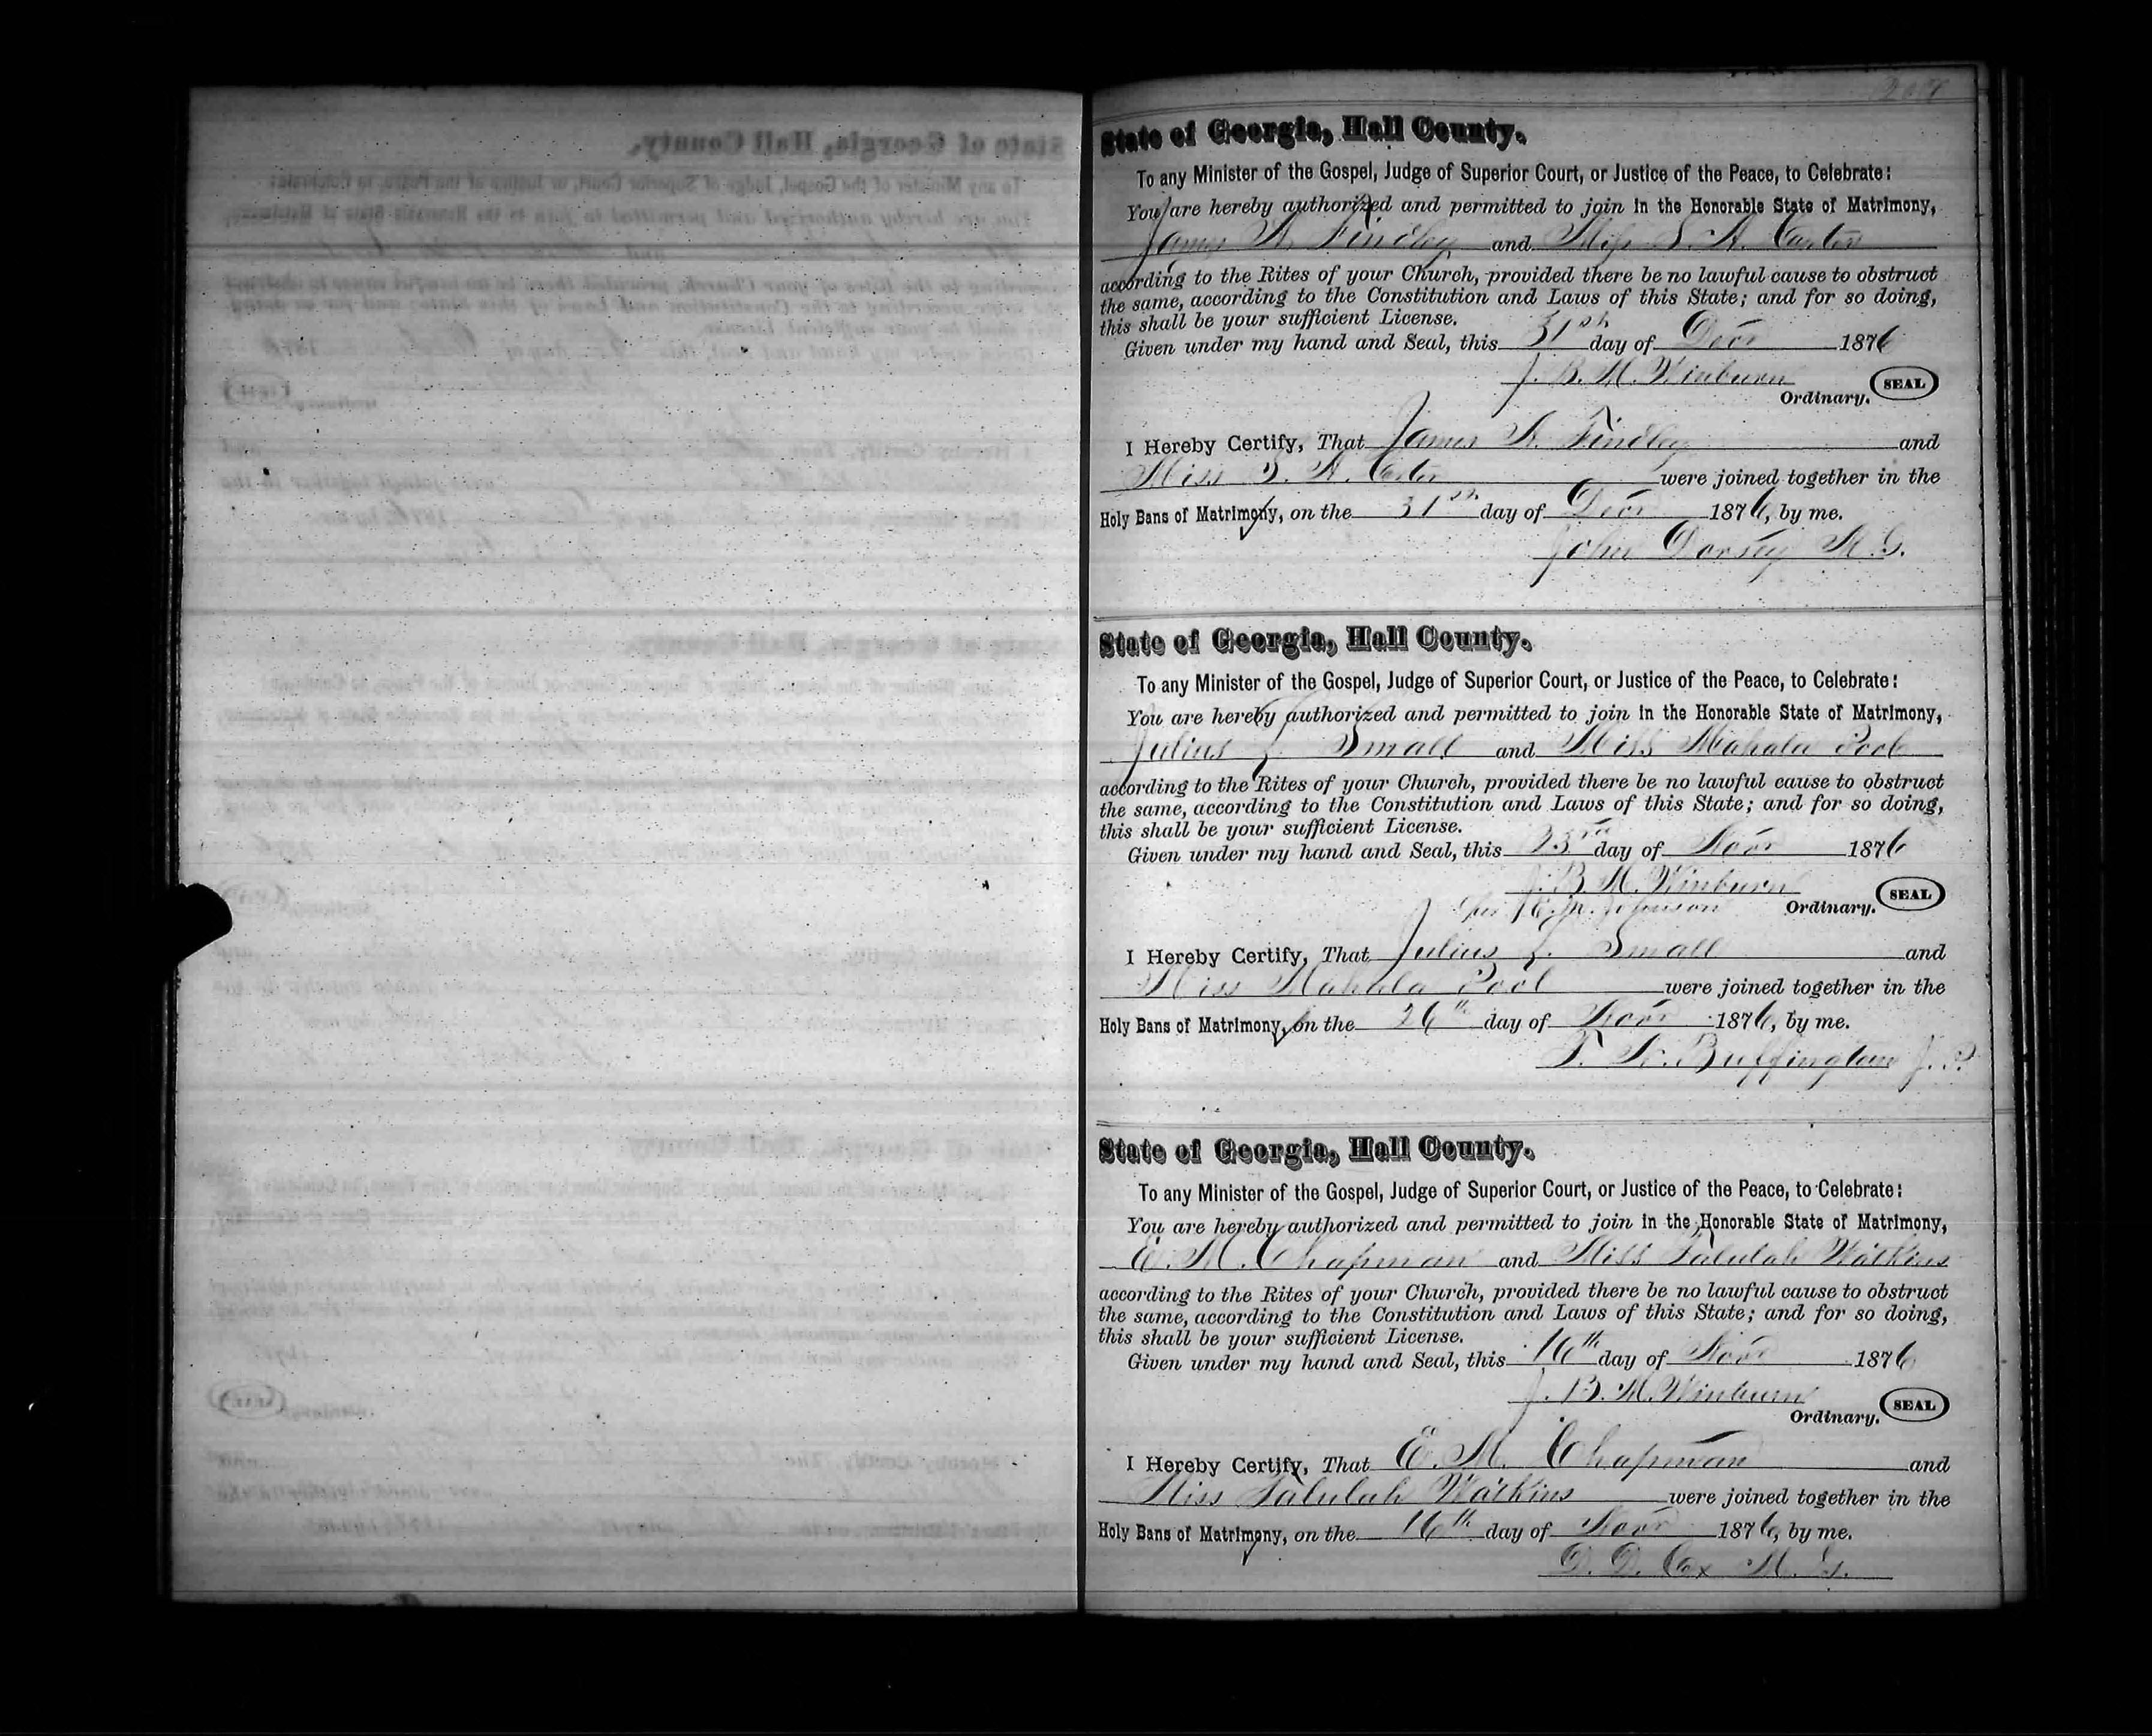 State of Georgia, Hall County.
To any Minister of the Gospel, Judge of Superior Court, or Justice of the Peace, to Celebrate:
You are hereby authorized and permitted to join in the Honorable State of Matrimony,
James A. Findley and Miss S. A. Carter
according to the Rites of your Church, provided there be no lawful cause to obstruct
the same, according to the Constitution and Laws of this State; and for so doing,
this shall be your sufficient License.
Given under my hand and Seal, this 31st day of Decr 1876
J. B. M. Winburn
Ordinary. SEAL
I Hereby Certify, That James A. Findley and
Miss S. A. Carter were joined together in the
Holy Bans of Matrimony, on the 31st day of Decr 1876, by me.
John Dorsey M.G.
State of Georgia, Hall County.
To any Minister of the Gospel, Judge of Superior Court, or Justice of the Peace, to Celebrate:
You are hereby authorized and permitted to join in the Honorable State of Matrimony,
Julius L. Small and Miss Mahala Pool
according to the Rites of your Church, provided there be no lawful cause to obstruct
the same, according to the Constitution and Laws of this State; and for so doing,
this shall be your sufficient License.
Given under my hand and Seal, this 23rd day of Novr 1876
J. B. M. Winburn
Johnson Ordinary. SEAL
I Hereby Certify, That Julius L. Small and
Miss Mahala Pool were joined together in the
Holy Bans of Matrimony, on the 26th day of Novr 1876, by me.
Buffington J. P.
State of Georgia, Hall County.
To any Minister of the Gospel, Judge of Superior Court, or Justice of the Peace, to Celebrate:
You are hereby authorized and permitted to join in the Honorable State of Matrimony,
E. M. Chapman and Miss Talulah Watkins
according to the Rites of your Church, provided there be no lawful cause to obstruct
the same, according to the Constitution and Laws of this State; and for so doing,
this shall be your sufficient License.
Given under my hand and Seal, this 16th day of Novr 1876
J. B. M. Winburn
Ordinary. SEAL
I Hereby Certify, That E. M. Chapman and
Miss Talulah Watkins were joined together in the
Holy Bans of Matrimony, on the 16th day of Novr 1876, by me.
D. D. Cox M. G.